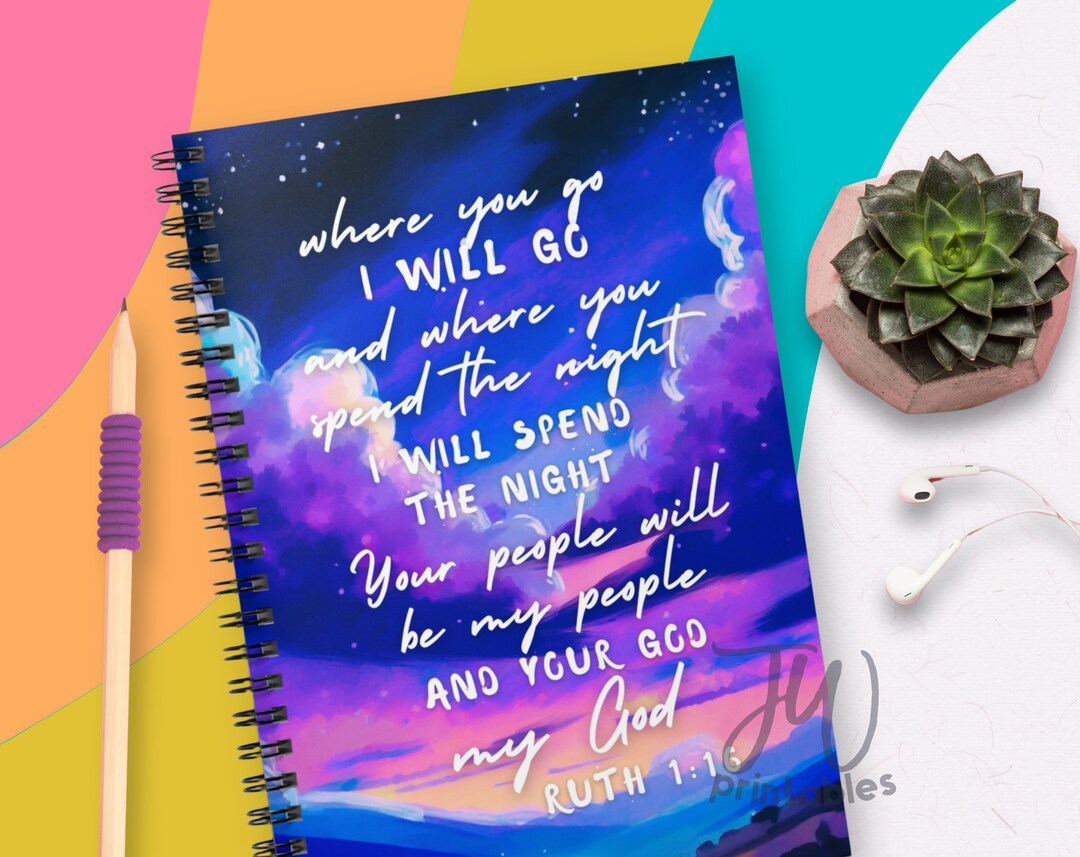 where you go
I WILL GO
and where you
spend the night
I WILL SPEND
THE NIGHT
Your people will
be my people
AND YOUR GOD
my God
RUTH 1:16
JW
printables